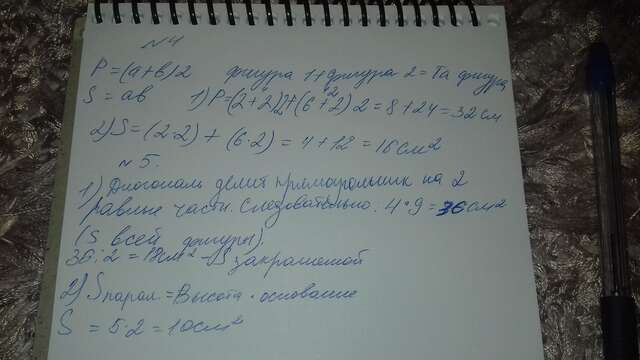 №4
P=(a+b)2 фигура 1+фигура 2=Та фигура
S=ab 1)P=(2+2)2+(6+2)2=8+24=32см
2)S=(2·2)+(6·2)=4+12=16см²
№5.
1)Диагональ делит прямоугольник на 2
равные части. Следовательно. 4·9=36см²
(S всей фигуры).
36:2=18см²-S закрашеной
2)Sпарал.=Высота·основание
S=5·2=10см²